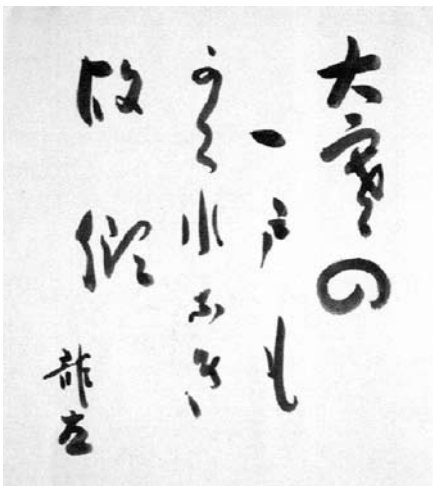 大寒の
一戸も
かくれなき
故郷
龍太